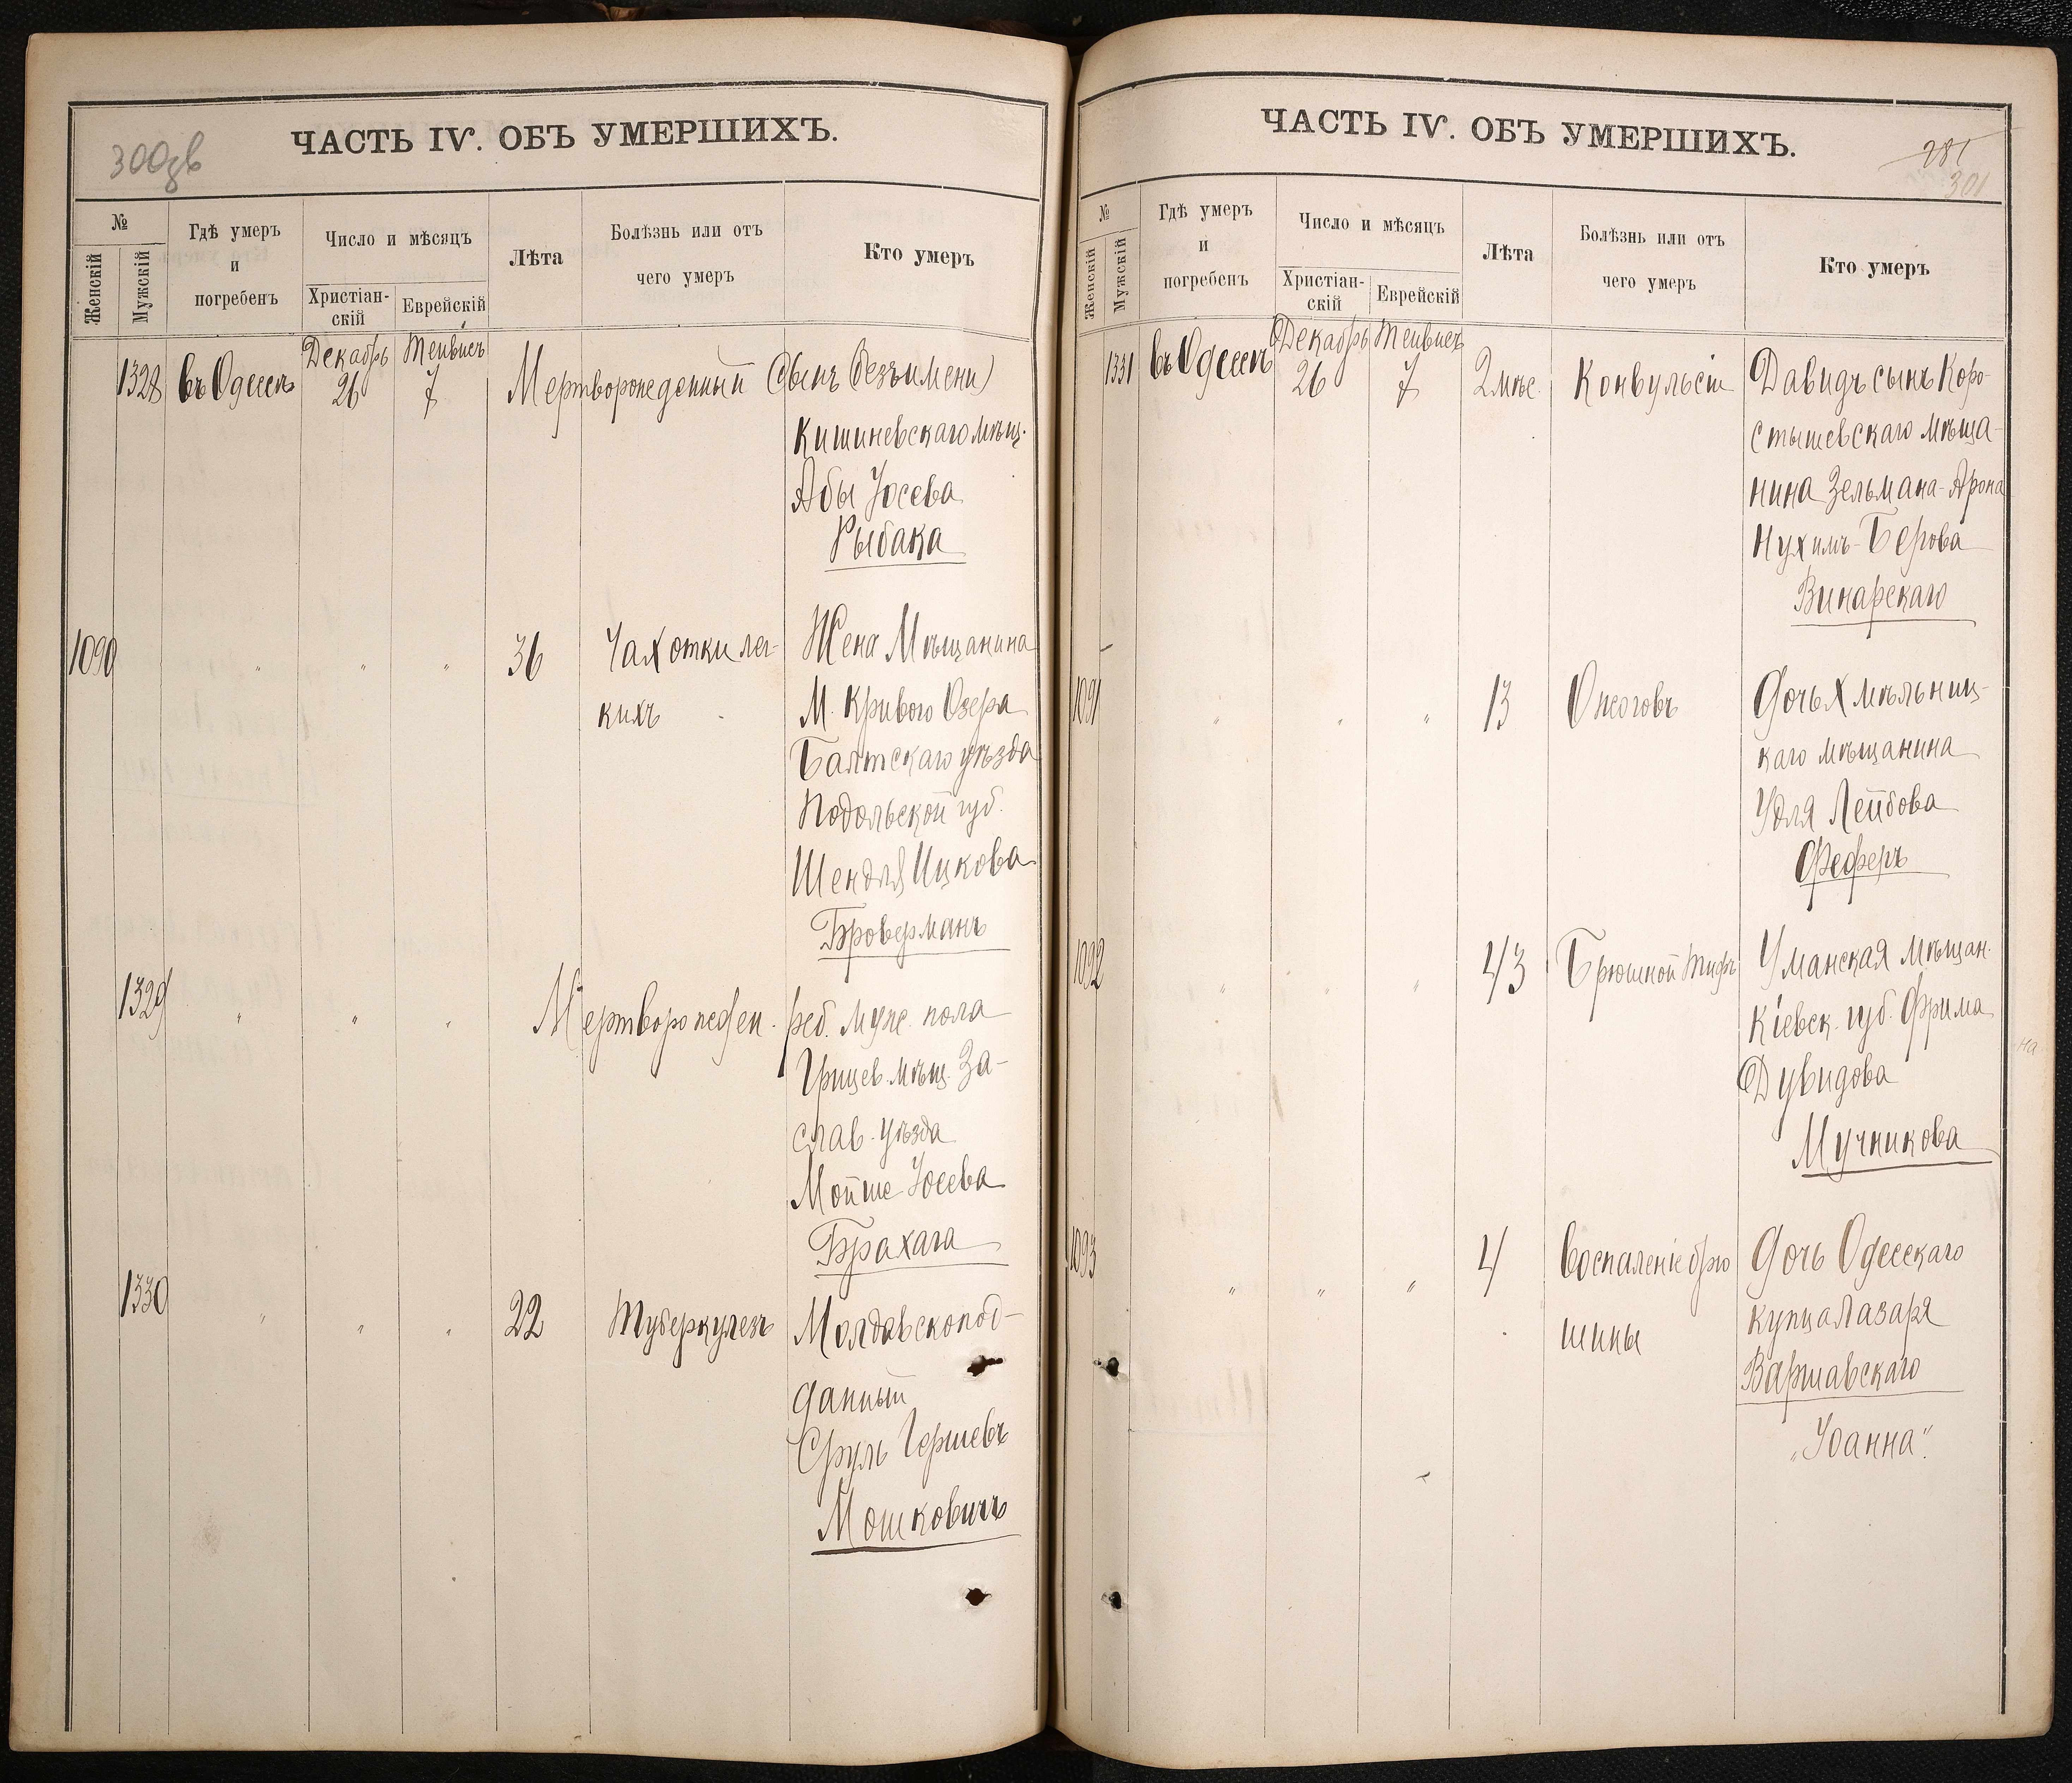 300зв
ЧАСТЬ IV. ОБЪ УМЕРШИХЪ.
№
Женскій
Мужскій
Гдѣ умеръ
и
погребенъ
Число и мѣсяцъ
Христіан-
скій
Еврейскій
Лѣта
Болѣзнь или отъ
чего умеръ
Кто умеръ
Декабрь Тейвисъ
1328 въ Одессѣ 26 7 Мертворожденный (Сынъ безъ имени)
Кишиневскаго мѣщ.
Абы Іосева
Рыбака
1090 " " " 36 Чахотки лег-
кихъ
Жена Мѣщанина
М. Кривого Озера
Балтскаго уѣзда
Подольской губ.
Шендля Ицкова
Броверманъ
1329 " " " Мертворожден. реб. мужс. пола
Грицев. мѣщ. За-
слав. уѣзда
Мойше Іосева
Брахага
1330 " " " 22 Туберкулезъ
Молдавскопод-
данный
Сруль Гершевъ
Мошковичъ
ЧАСТЬ IV. ОБЪ УМЕРШИХЪ.
281
301
№
Женскій
Мужскій
Гдѣ умеръ
и
погребенъ
Число и мѣсяцъ
Христіан-
скій
Еврейскій
Лѣта
Болѣзнь или отъ
чего умеръ
Кто умеръ
Декабрь Тейвисъ
1331 въ Одессѣ 26 7 2 мѣс. Конвульсіи
Давидъ сынъ Коро-
стышевскаго мѣща-
нина Зельмана-Арона
Нухимъ-Берова
Винарскаго
1091 " " " 13 Ожоговъ
Дочь Хмѣльниц-
каго мѣщанина
Удля Лейбова
Феферъ
1092 " " " 43 Брюшной Тифъ
Уманская мѣщан.
Кіевск. губ. Фрима
Дувидова
Мучникова
на
1093 " " " 4 Воспаленіе брю
шины
Дочь Одесскаго
купца Лазаря
Варшавскаго
„Іоанна".